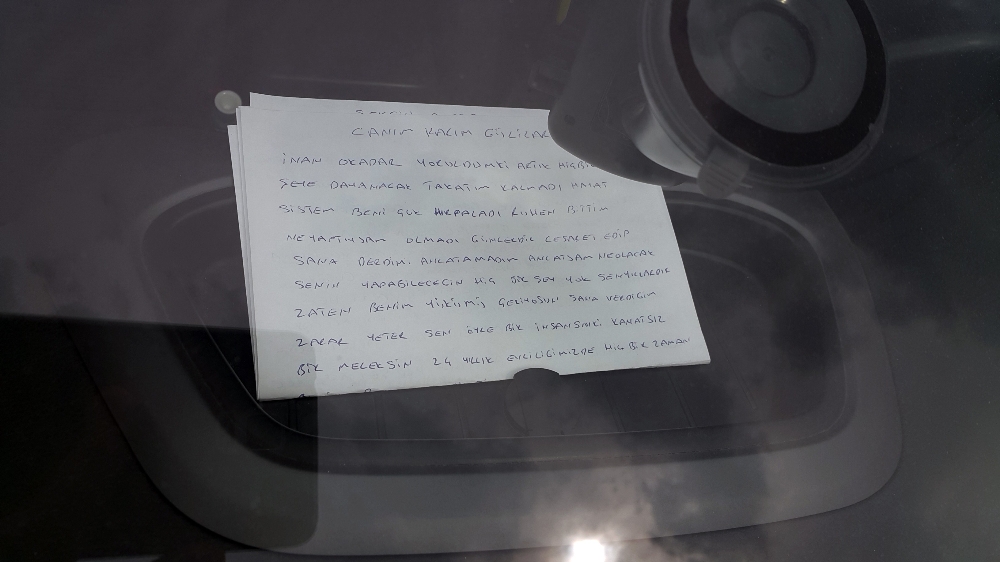 CANIM KARIM GÜLÜZAR
İNAN OKADAR YORULDUMKİ ARTIK HİÇBİR
ŞEYE DAYANACAK TAKATIM KALMADI HAYAT
SİSTEM BENİ ÇOK HIRPALADI BİTTİM
NEYAPTIYSAM OLMADI GÜNLERDİR CESARET EDİP
SANA DERDİMİ ANLATAMADIM ANLATSAM NEOLACAK
SENİN YAPABİLECEĞİN HİÇ BİR ŞEY YOK SENYILLARDIR
ZATEN BENİM YÜKÜMÜ ÇEKİYOSUN SANA VERDİĞİM
ZARAR YETER SEN ÖYLE BİR İNSANSINKİ KANATSIZ
BİR MELEKSİN 24 YILLIK EVLİLİĞİMİZDE HİÇ BİR ZAMAN